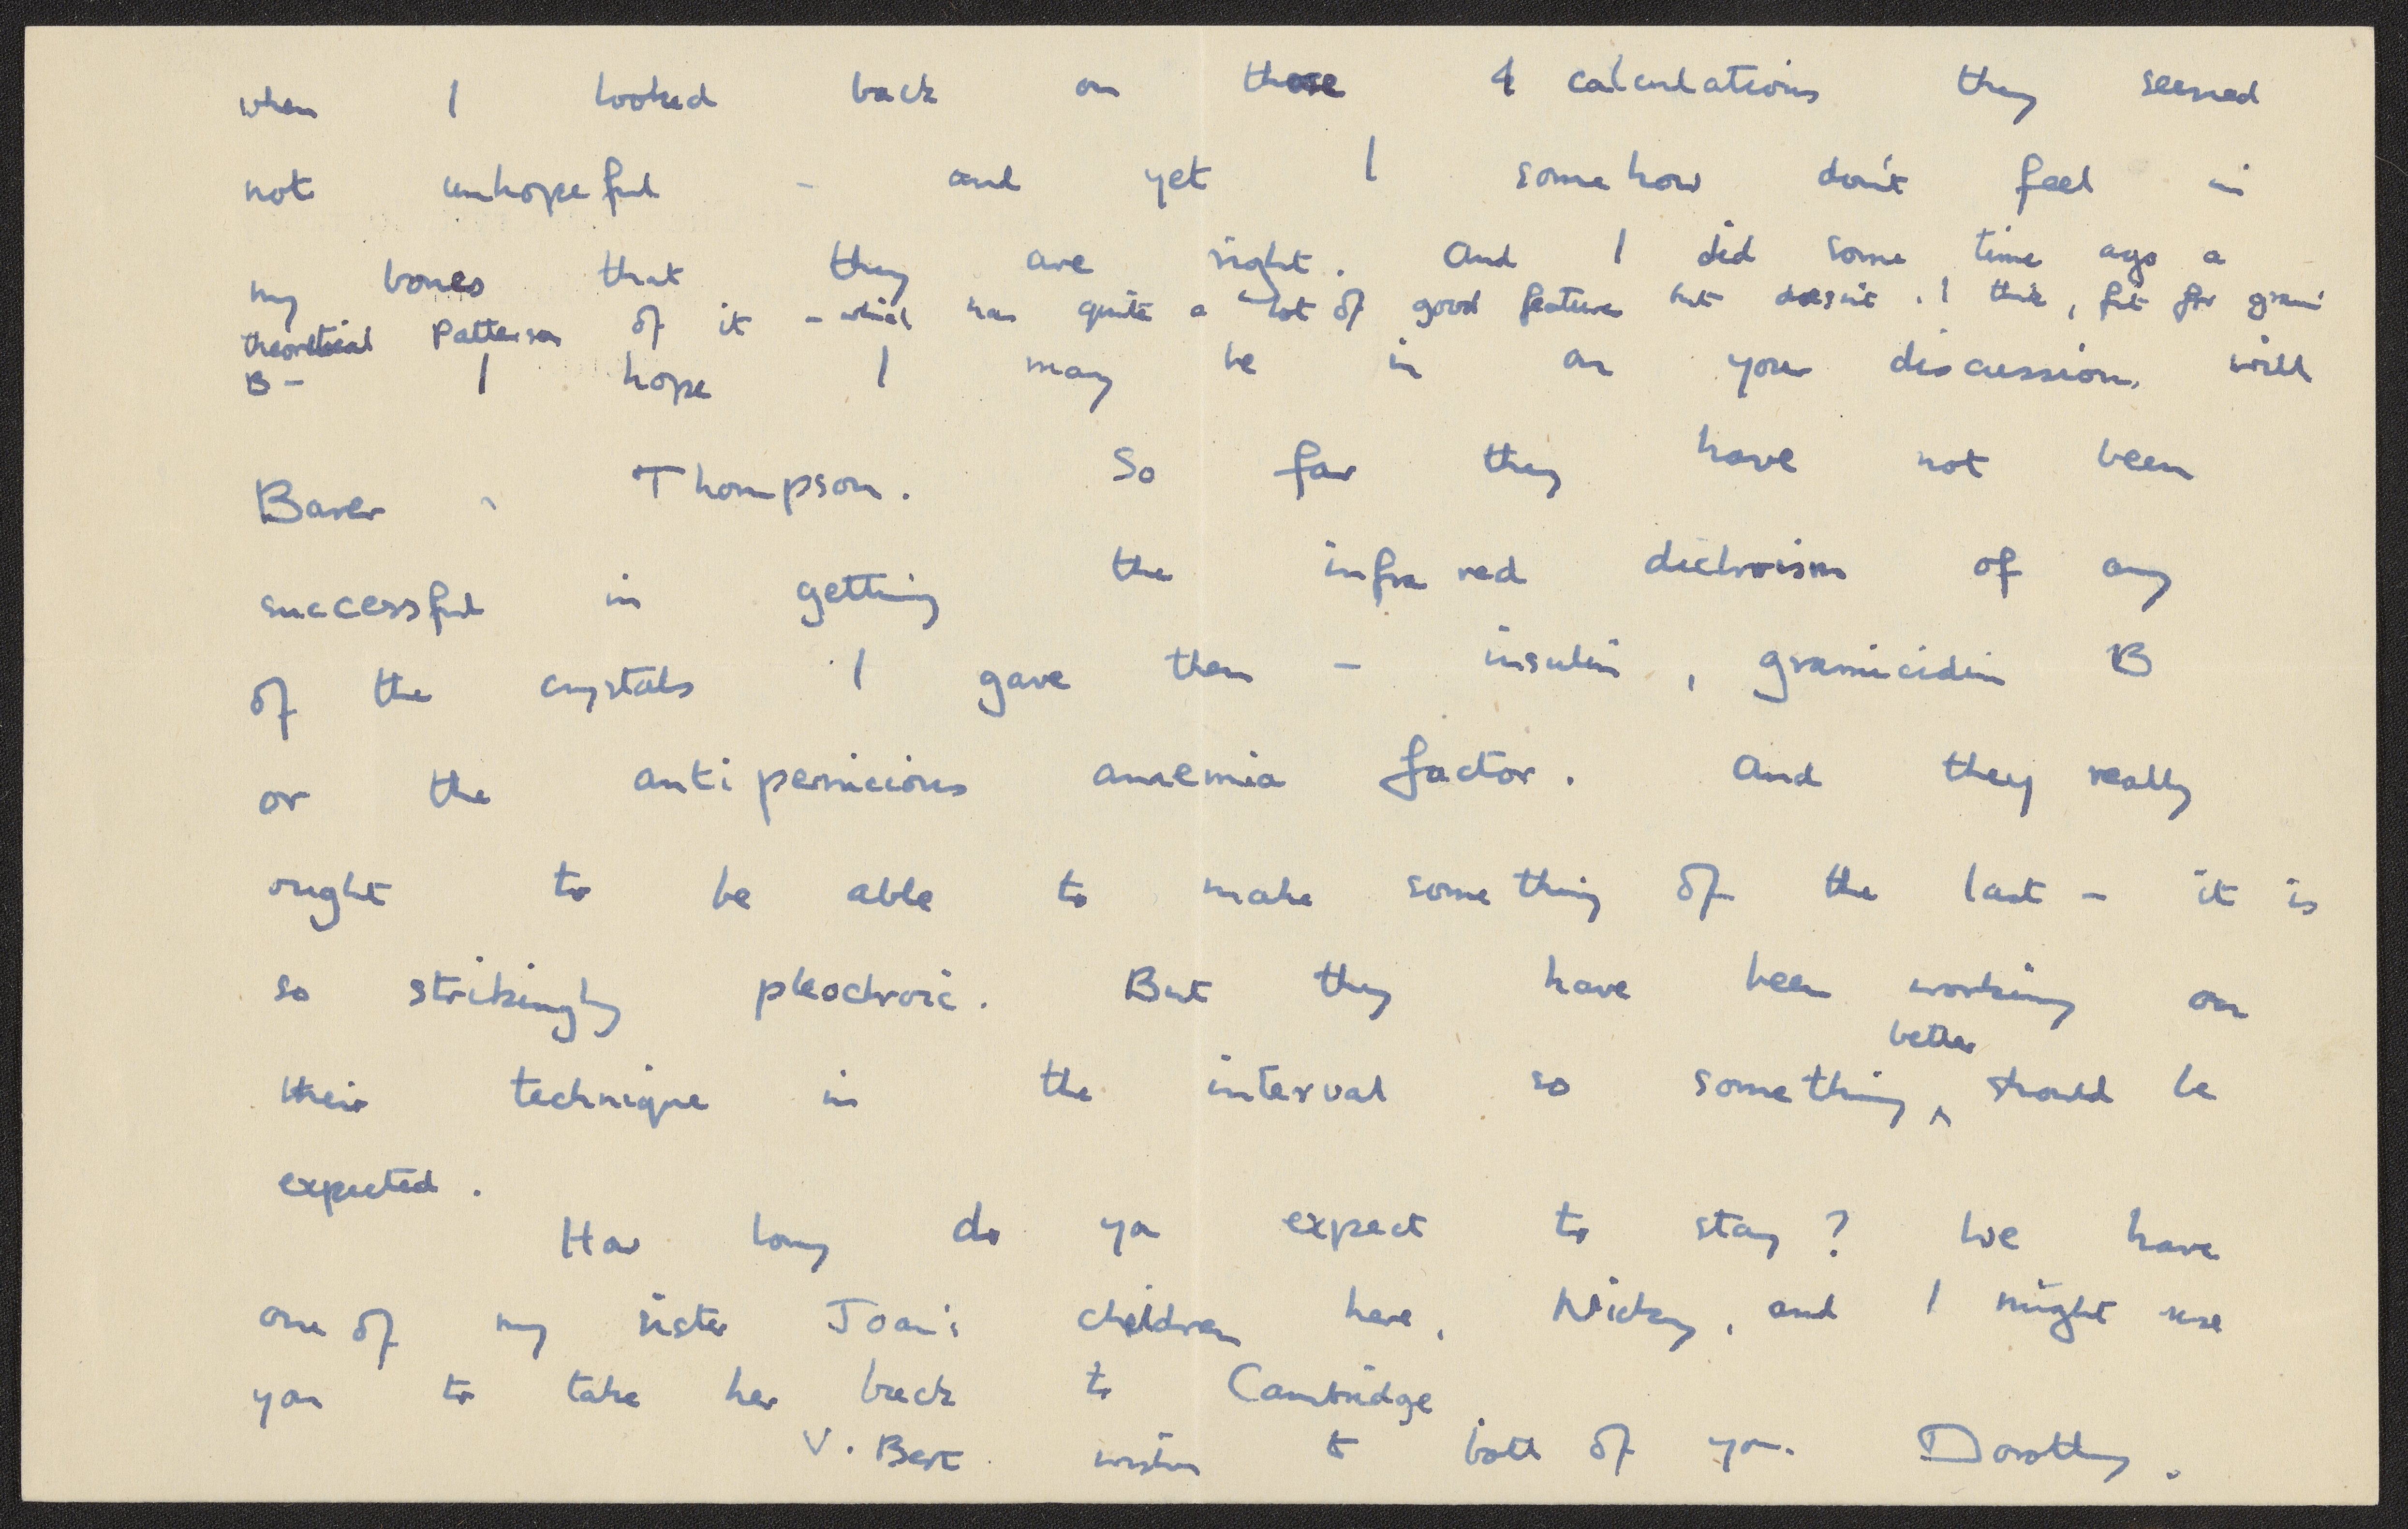 when I looked back on those 4 calculations they seemed
not unhopeful - and yet I somehow don't feel in
my bones that they are right. And I did some time ago a
theoretical Patterson of it - which has quite a lot of good features but doesn't, I think, fit for grami
B - I hope I may be in on your discussion, with
Barer & Thompson. So far they have not been
successful in getting the infra red dichroism of any
of the crystals I gave them - insulin, gramicidin B
or the anti pernicious anaemia factor. And they really
ought to be able to make something of the last - it is
so strikingly pleochroic. But they have been working on
their technique in the interval so something ^ better should be
expected.
How long do you expect to stay? We have
one of my sister Joan's children here, Nicky, and I might use
you to take her back to Cambridge
V. Best wishes to both of you. Dorothy.